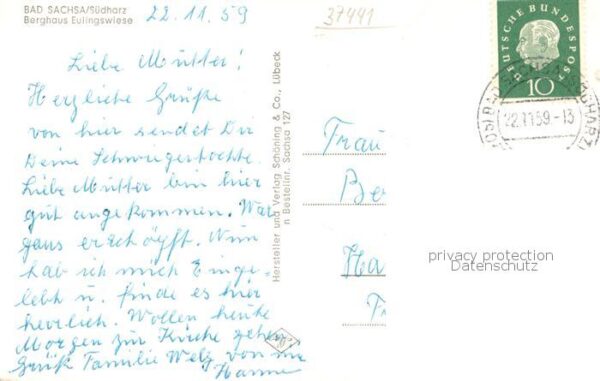 BAD SACHSA/Südharz
Berghaus Eulingswiese
22.11.59
37441
Liebe Mutter!
Herzliche Grüße
von hier sendet Dir
Deine Schwiegertochter.
Liebe Mutter bin hier
gut angekommen. War
ganz erschöpft. Nun
hab ich mich Einge-
lebt u. finde es hier
herrlich. Wollen heute
Morgen zur Kirche gehen
Grüß Familie Welz von mir
Hanne
Hersteller und Verlag Schöning & Co., Lübeck
n Bestellnr. Sachsa 127
DEUTSCHE BUNDESPOST
10
22.11.59-13
Frau
Be
Ha
Fr
privacy protection
Datenschutz